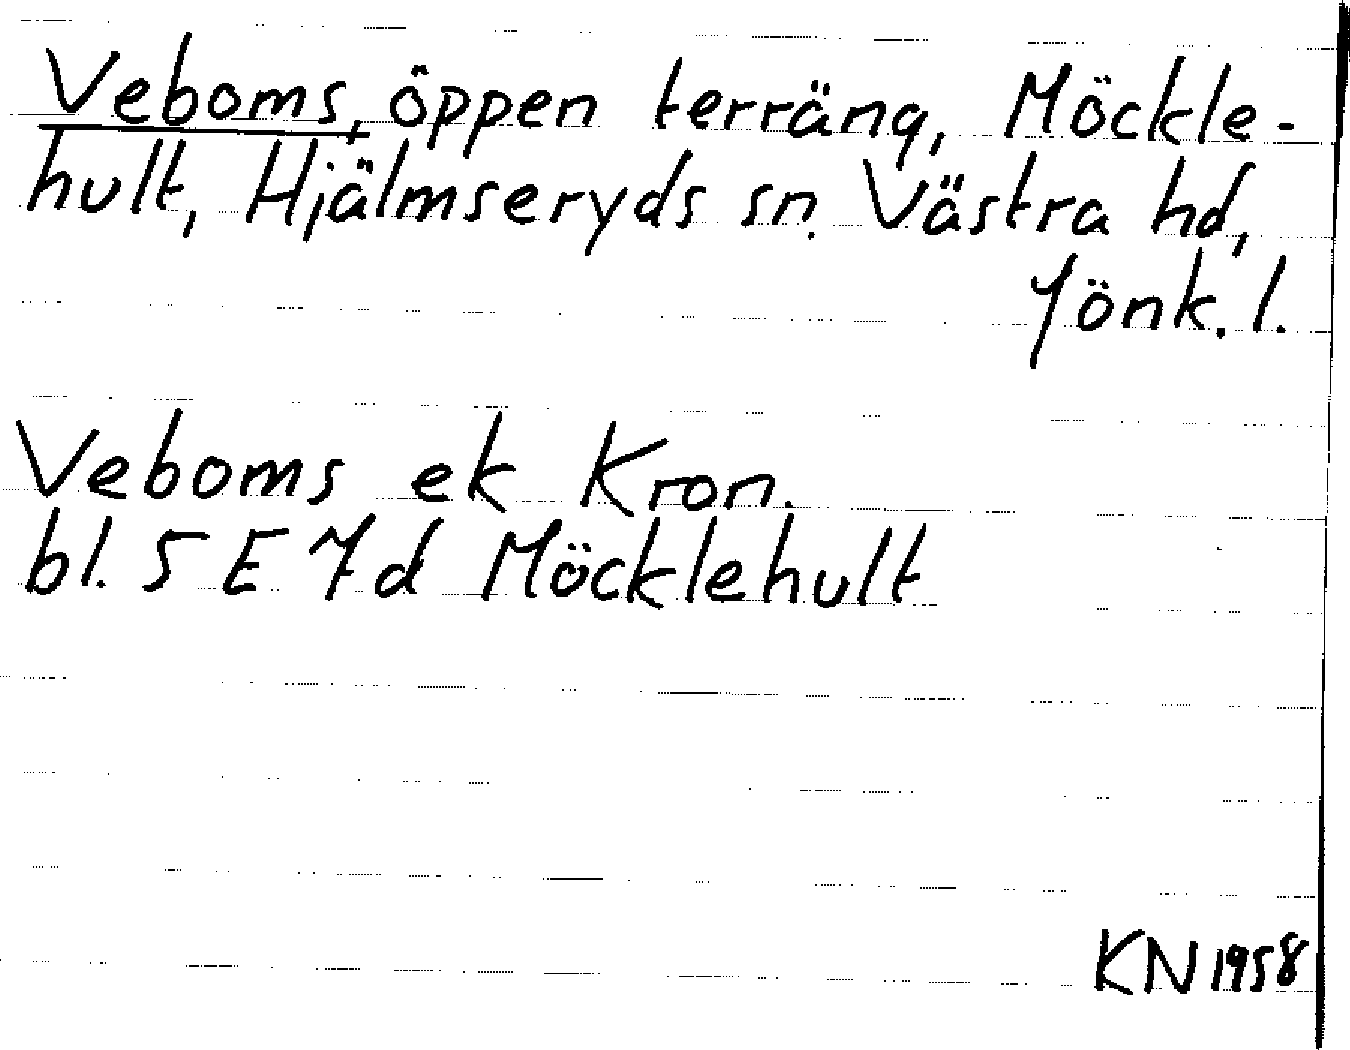 Veboms, öppen terräng, Möckle-
hult, Hjälmseryds sn. Västra hd,
Jönk. l.
Veboms ek Kron.
bl. 5 E 7d Möcklehult
KN 1958